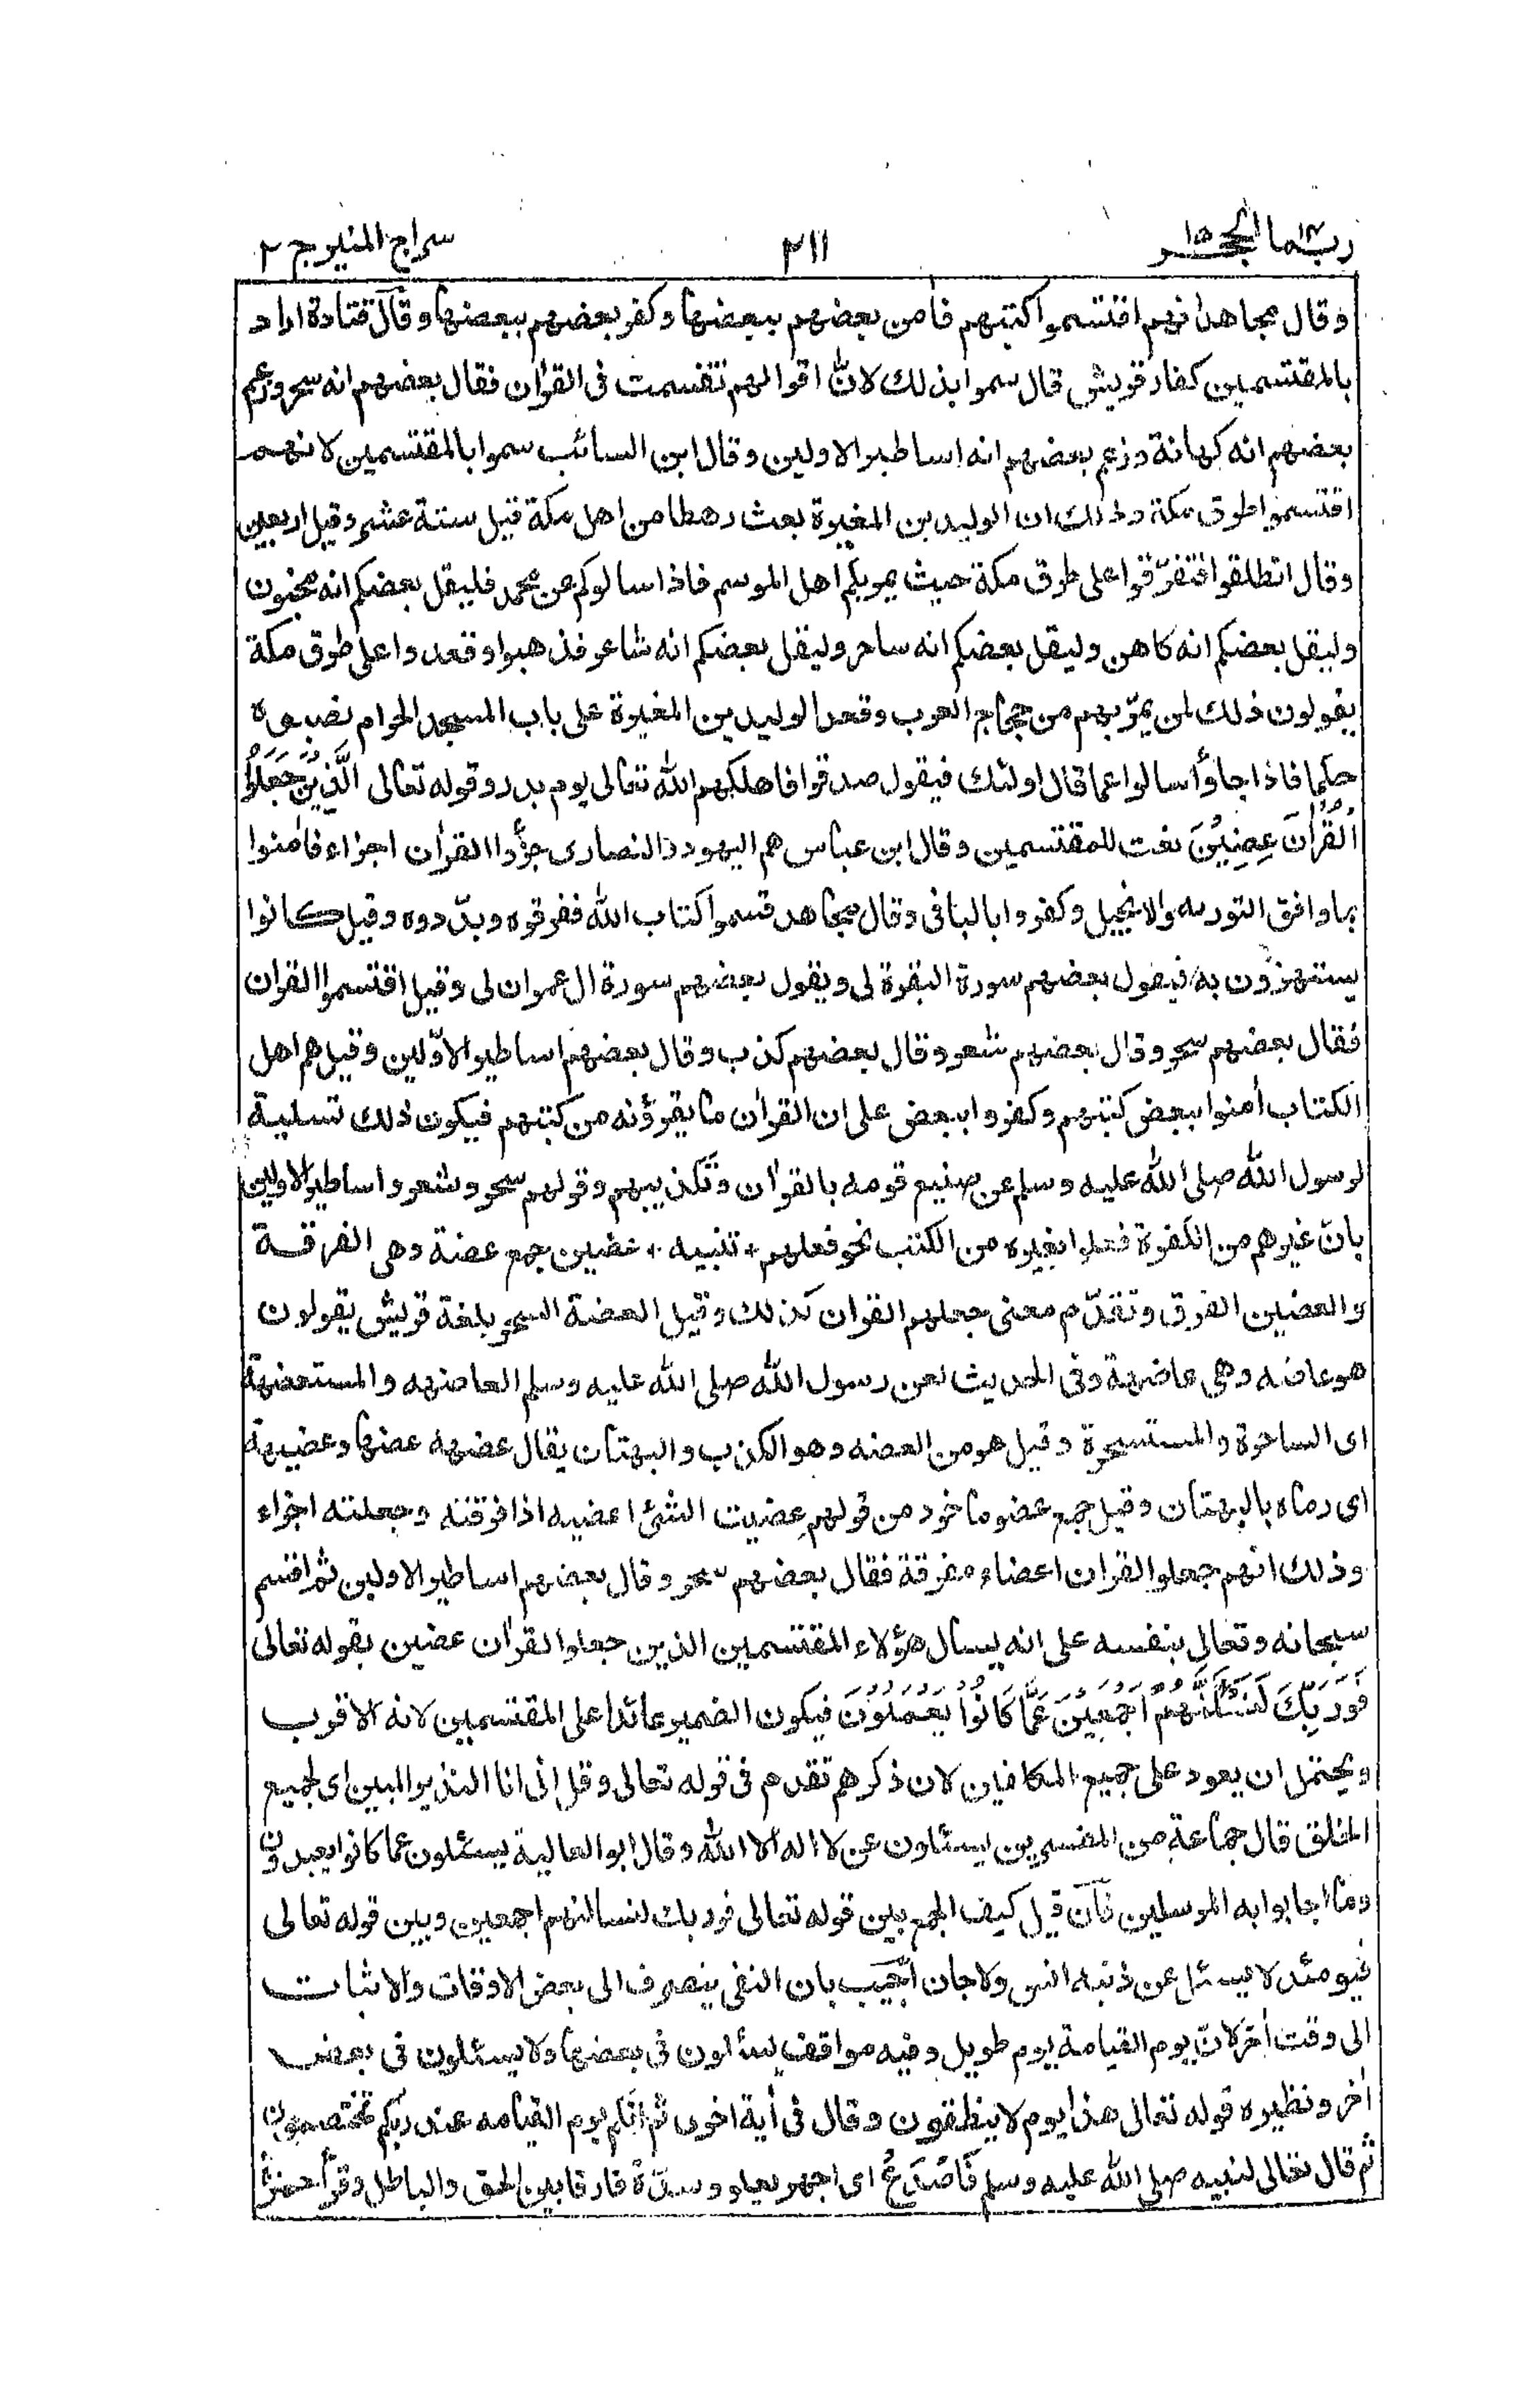 ربما ١٤ الحجر ١٥
٢١١
سراج المنير ج ٢
وقال مجاهد انهم اقتسموا كتبهم فامن بعضهم ببعضها وكفر بعضهم ببعضها وقال قتادة اراد
بالمقتسمين كفار قريش قال سموا بذلك لانّ اقوالهم تقسمت فى القرٰان فقال بعضهم انه سحر وزعم
بعضهم انه كهانة وزعم بعضهم انه اساطير الاولين وقال ابن السائب سموا بالمقتسمين لانهم
اقتسموا طرق مكة وذلك ان الوليد بن المغيرة بعث رهطا من اهل مكة قيل ستة عشر وقيل اربعين
وقال انطلقوا فتفرّقوا على طرق مكة حيث يمر بكم اهل الموسم فاذا سالوكم عن محمد فليقل بعضكم انه مجنون
وليقل بعضكم انه كاهن وليقل بعضكم انه ساحر وليقل بعضكم انه شاعر فذهبوا وقعدوا على طرق مكة
يقولون ذلك لمن يمرّ بهم من حجاج العرب وقعد الوليد بن المغيرة على باب المسجد الحرام نصبوه
حكما فاذا جاؤا سالوا عما قال اولئك فيقول صدقوا فاهلكهم الله تعالى يوم بدر وقوله تعالى الَّذِيْنَ جَعَلُوا
الْقُرْاٰنَ عِضِيْنَ نعت للمقتسمين وقال ابن عباس هم اليهود والنصارى جزّؤا القرٰان اجزاء فاٰمنوا
بما وافق التورىه والانجيل وكفروا بالباقى وقال مجاهد قسموا كتاب الله ففرقوه وبدّدوه وقيل كانوا
يستهزؤن به فيقول بعضهم سورة البقرة لى ويقول بعضهم سورة ال عمران لى وقيل اقتسموا القران
فقال بعضهم سحر وقال بعضهم شعر وقال بعضهم كذب وقال بعضهم اساطير الاوّلين وقيل هم اهل
الكتاب اٰمنوا ببعض كتبهم وكفروا ببعض على ان القرٰان ما يقرؤنه من كتبهم فيكون ذلك تسلية
لرسول الله صلى الله عليه وسلم عن صنيع قومه بالقرٰان وتكذيبهم وقولهم سحر وشعر واساطير الاولين
بانّ غيرهم من الكفرة فعلوا بغيره من الكتب نحو فعلهم + تنبيه + عضين جمع عضة وهى الفرقة
والعضين الفرق وتقدّم معنى جعلهم القران كذلك وقيل العضة السحر بلغة قريش يقولون
هو عاضه وهى عاضهة وفى الحديث لعن رسول الله صلى الله عليه وسلم العاضهه والمستعضهة
اى الساحرة والمستسحرة وقيل هو من العضه وهو الكذب والبهتان يقال عضهه عضها وعضيهة
اى رماه بالبهتان وقيل جمع عضو ماخوذ من قولهم عضيت الشئ اعضيه اذا فرقته وجعلته اجزاء
وذلك انهم جعلوا القران اعضاء مفرقة فقال بعضهم سحر وقال بعضهم اساطير الاولين ثم اقسم
سبحانه وتعالى بنفسه على انه يسال هؤلاء المقتسمين الذين جعلوا القرٰان عضين بقوله تعالى
فَوَرَبِّكَ لَنَسْئَلَنَّهُمْ اَجْمَعِيْنَ عَمَّا كَانُوْا يَعْمَلُوْنَ فيكون الضمير عائدا على المقتسمين لانه الاقرب
ويحتمل ان يعود على جميع المكلفين لان ذكرهم تقدم فى قوله تعالى وقل انى انا النذير المبين اى لجميع
الخلق قال جماعة من المفسرين يسئلون عن لا اله الا الله وقال ابو العالية يسئلون عما كانوا يعبدون
وما اجابوا به المرسلين فان قيل كيف الجمع بين قوله تعالى فوربك لنسالنهم اجمعين وبين قوله تعالى
فيومئذ لا يسئل عن ذنبه انس ولا جان اجيب بان النفى ينصرف الى بعض الاوقات والاثبات
الى وقت اٰخر لانّ يوم القيامة يوم طويل وفيه مواقف يسئلون فى بعضها ولا يسئلون فى بعض
اٰخر ونظيره قوله تعالى هذا يوم لا ينطقون وقال فى اٰية اخرى ثم انكم يوم القيامه عند ربكم تختصمون
ثم قال تعالى لنبيه صلى الله عليه وسلم فَاصْدَعْ اى اجهر بعلو وشدّة فارقا بين الحق والباطل وقرأ حمزة